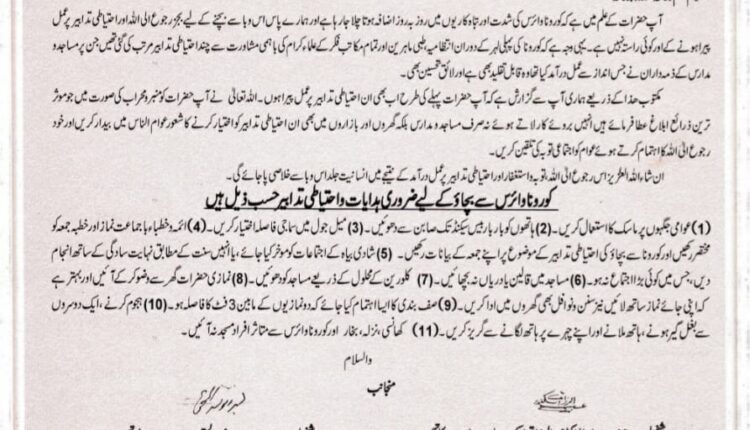 آپ حضرات کے علم میں ہے کہ کورونا وائرس کی شدت اور تباہ کاریوں میں روز بہ روز اضافہ ہوتا چلا جا رہا ہے اور ہمارے پاس اس وبا سے بچنے کے لیے بجز رجوع الی اللہ اور احتیاطی تدابیر پر عمل
پیرا ہونے کے اور کوئی راستہ نہیں ہے۔ یہی وجہ ہے کہ کورونا کی پہلی لہر کے دوران انتظامیہ، طبی ماہرین اور تمام مکاتب فکر کے علماء کرام کی باہمی مشاورت سے چند احتیاطی تدابیر مرتب کی گئی تھیں جن پر مساجد و
مدارس کے ذمہ داران نے جس انداز سے عمل درآمد کیا تھا وہ قابل تقلید بھی ہے اور لائق تحسین بھی۔
مکتوب ھذا کے ذریعے ہماری آپ سے گزارش ہے کہ آپ حضرات پہلے کی طرح اب بھی ان احتیاطی تدابیر پر عمل پیرا ہوں۔ اللہ تعالیٰ نے آپ حضرات کو منبر و محراب کی صورت میں جو موثر
ترین ذرائع ابلاغ عطا فرمائے ہیں انہیں بروئے کار لاتے ہوئے نہ صرف مساجد و مدارس بلکہ گھروں اور بازاروں میں بھی ان احتیاطی تدابیر کو اختیار کرنے کا شعور عوام الناس میں بیدار کریں اور خود
رجوع الی اللہ کا اہتمام کرتے ہوئے عوام کو اجتماعی توبہ کی تلقین کریں۔
ان شاء اللہ العزیز اس رجوع الی اللہ، توبہ و استغفار اور احتیاطی تدابیر پر عمل درآمد کے نتیجے میں انسانیت جلد اس وبا سے خلاصی پا جائے گی۔
کورونا وائرس سے بچاؤ کے لیے ضروری ہدایات و احتیاطی تدابیر حسب ذیل ہیں
(1) عوامی جگہوں پر ماسک کا استعمال کریں۔ (2) ہاتھوں کو بار بار بیس سیکنڈ تک صابن سے دھوئیں۔ (3) میل جول میں سماجی فاصلہ اختیار کریں۔ (4) ائمہ و خطباء جماعت نماز اور خطبہ جمعہ کو
مختصر رکھیں اور کورونا سے بچاؤ کی احتیاطی تدابیر کے موضوع پر اپنے جمعہ کے بیانات رکھیں۔ (5) شادی بیاہ کے اجتماعات کو موخر کیا جائے، یا انہیں سنت کے مطابق نہایت سادگی کے ساتھ انجام
دیں، جس میں کوئی بڑا اجتماع نہ ہو۔ (6) مساجد میں قالین یا دریاں نہ بچھائیں۔ (7) کلورین کے محلول کے ذریعے مساجد کو دھوئیں۔ (8) نمازی حضرات گھر سے وضو کر کے آئیں اور بہتر ہے
کہ اپنی جائے نماز ساتھ لائیں نیز سنن و نوافل بھی گھروں میں ادا کریں۔ (9) صف بندی کا ایسا اہتمام کیا جائے کہ دو نمازیوں کے مابین 3 فٹ کا فاصلہ ہو۔ (10) ہجوم کرنے، ایک دوسروں
سے بغل گیر ہونے، ہاتھ ملانے اور اپنے چہرے پر ہاتھ لگانے سے گریز کریں۔ (11) کھانسی، نزلہ، بخار اور کورونا وائرس سے متاثر افراد مسجد نہ آئیں۔
والسلام
منجانب